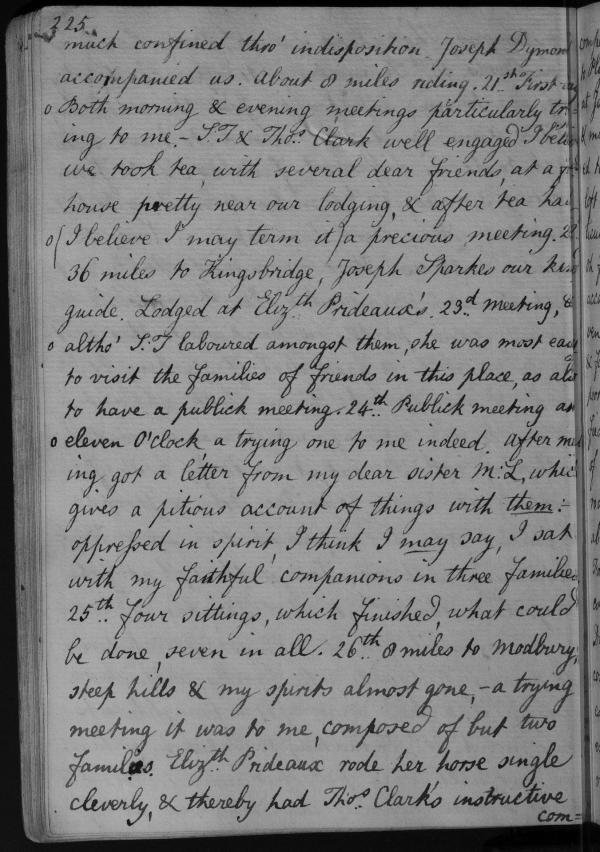 225
much confined thro' indisposition. Joseph Dymond
accompanied us. about 8 miles riding. 21st. First
o Both morning & evening meetings particularly try=
ing to me. - S.T & Thos. Clark well engaged I
we took tea with several dear friends, at a
house pretty near our lodging, & after tea had
o (I believe I may term it) a precious meeting.
36 miles to Kingsbridge, Joseph Sparkes our kind
guide. Lodged at Elizth. Prideaux's. 23d. meeting, &
o altho' S.T laboured amongst them, she was most easy
to visit the families of friends in this place, as also
to have a publick meeting. 24th. Publick meeting at
o eleven O'Clock, a trying one to me indeed. After meet
ing got a letter from my dear sister M:L, which
gives a pitious account of things with them:-
oppressed in spirit, I think I may say, I sat
with my faithful companions in three families.
25th. four sittings, which finished, what could
be done, seven in all. 26th. 8 miles to Modbury,
steep hills & my spirits almost gone, - a trying
meeting it was to me, composed of but two
families. Elizth. Prideaux rode her horse single
cleverly, & thereby had Thos. Clark's instructive
com=